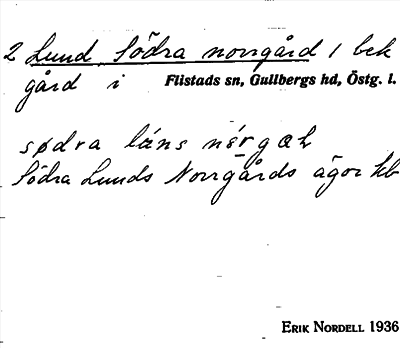 2 Lund Södra norrgård / bek
gård i Flistads sn, Gullbergs hd, Östg. l.
sødra láns nórgæḷ
Södra Lunds Norrgårds ägor hb
ERIK NORDELL 1936